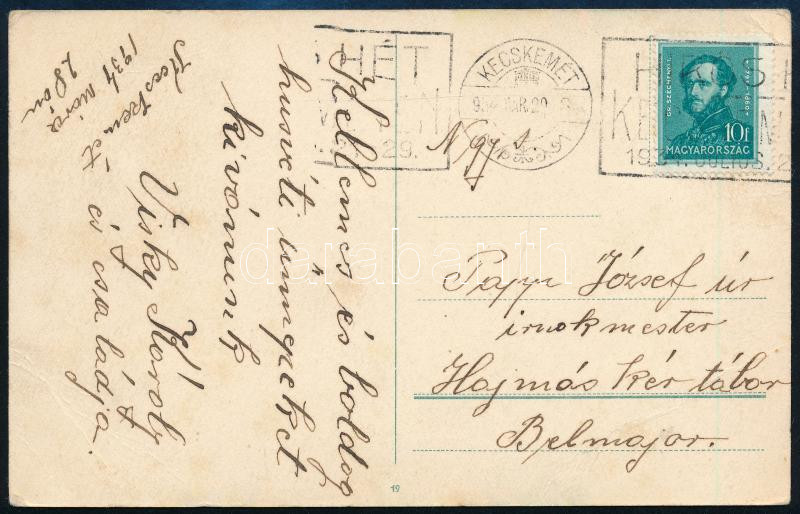 Kecskemét
1934 márc
28 án
Kellemes és boldog
husvéti ünnepeket
kívánunk
Visky Károly
és családja.
HÉT
29.
KECSKEMÉT
934 MAR. 29
GR. SZÉCHENYI I.
1791-1860
10f
MAGYARORSZÁG
Nagys
Papp József úr
irnokmester
Hajmás kér tábor
Belmajor.
19
darabanth